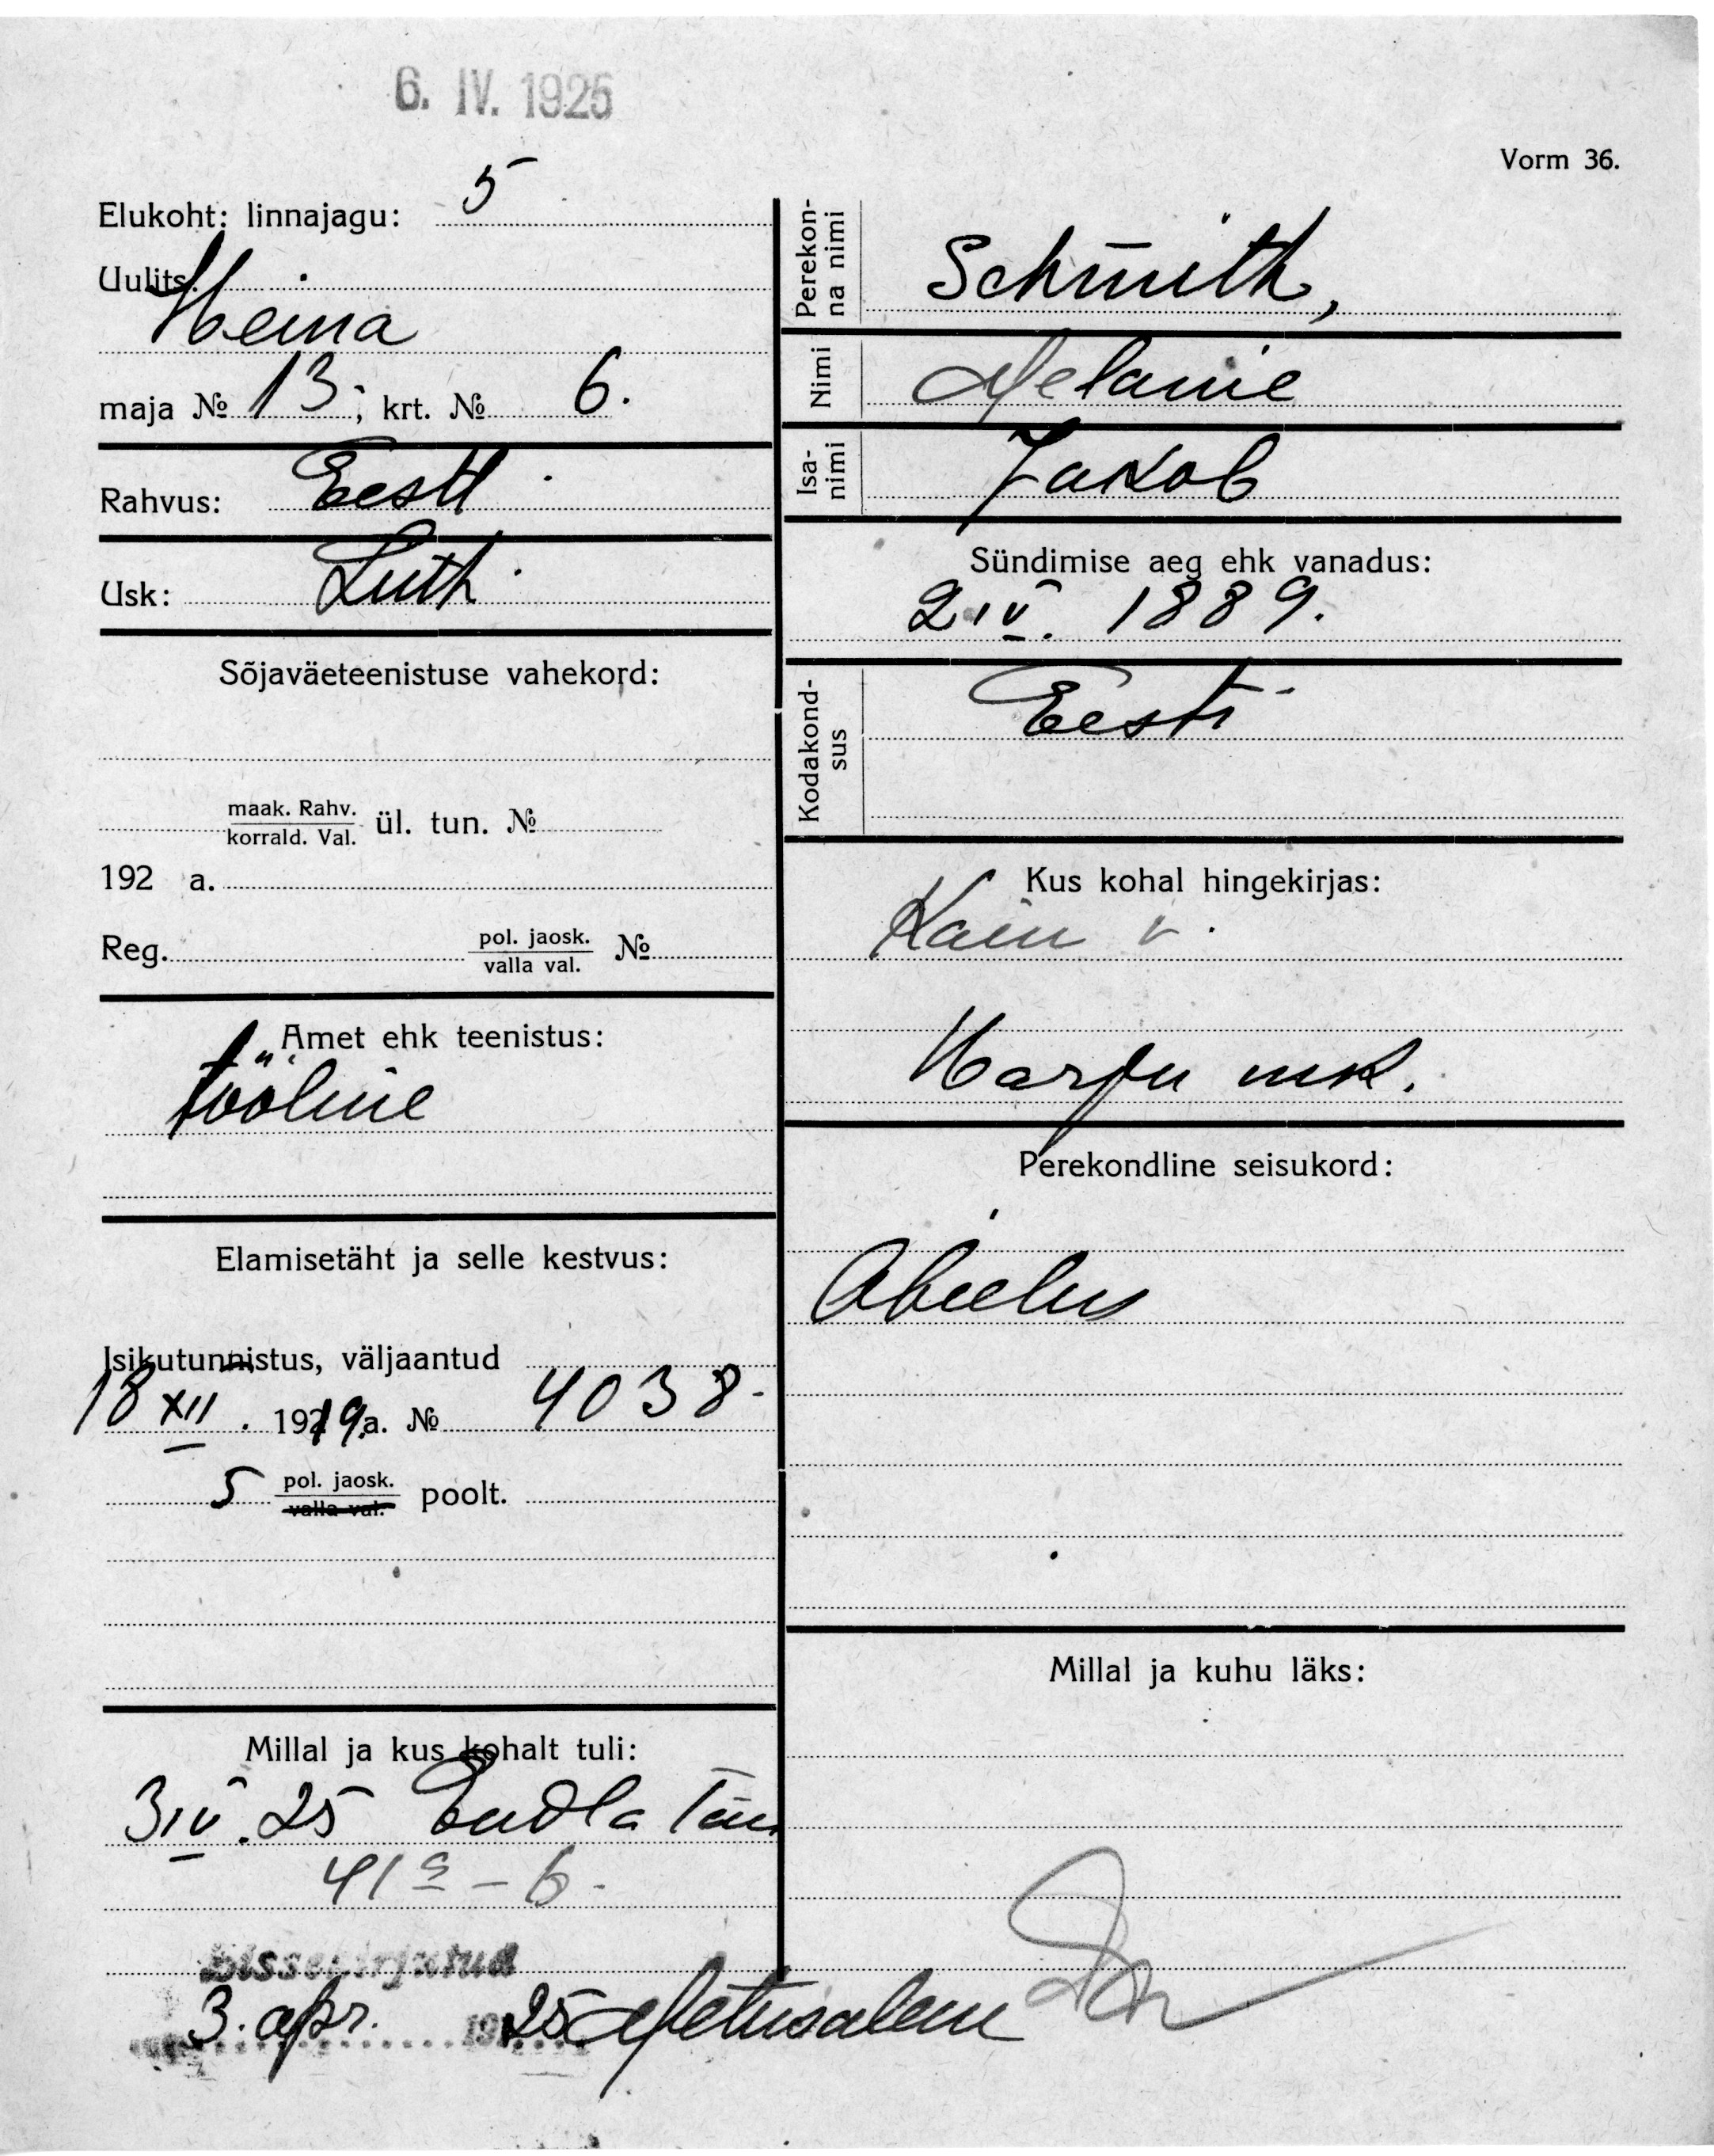 6. IV. 1925
Vorm 36.
Elukoht: linnajagu: 5
Uulits: Heina
maja № 13; krt. № 6.
Rahvus: Eesti
Usk: Luth.
Sõjaväeteenistuse vahekord:
maak. Rahv.
korrald. Val. ül. tun. №
192 a.
Reg. pol. jaosk. №
valla val.
Amet ehk teenistus:
tööline
Elamisetäht ja selle kestvus:
Isikutunnistus, väljaantud
18 XII. 1919 a. № 4038
5 pol. jaosk. poolt.
valla val.
Millal ja kus kohalt tuli:
3 IV. 25 Endla tän
41 a – 6.
Sissekirjutud
3. apr. 1925
Perekonna nimi Schmith,
Nimi Melanie
Isanimi Jakob
Sündimise aeg ehk vanadus:
2 IV. 1889.
Kodakondsus Eesti
Kus kohal hingekirjas:
v.
Harju mk.
Perekondline seisukord:
Abielus
Millal ja kuhu läks:
Metusalem